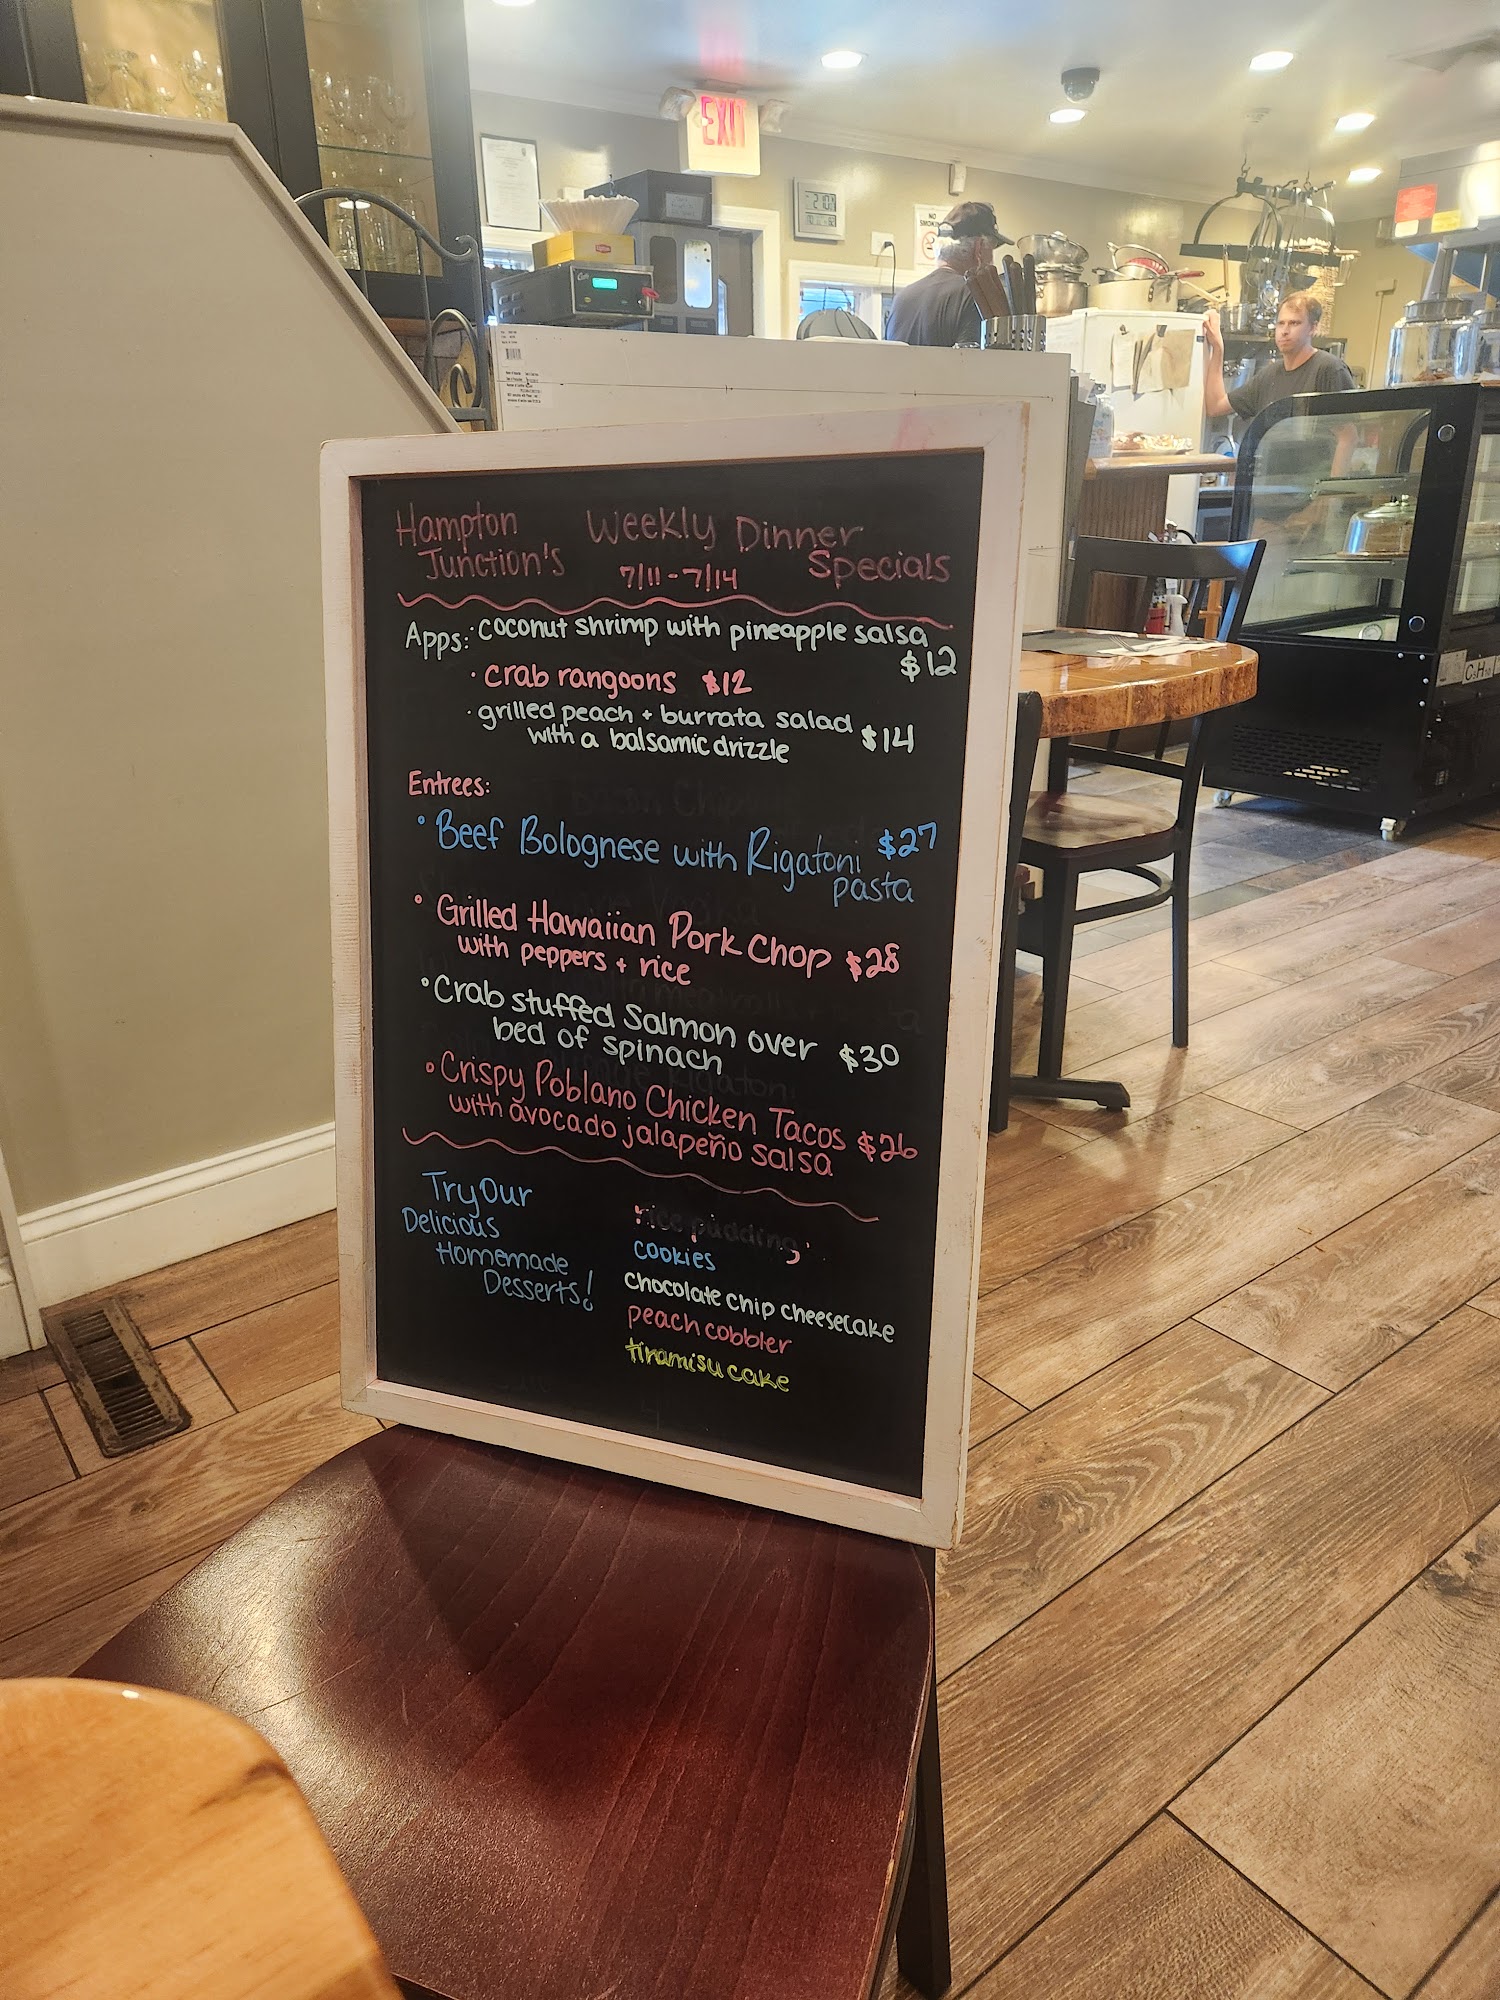 EXIT
NO
SMOKING
Hampton
Junction's
Weekly Dinner
Specials
7/11-7/14
Apps: · coconut shrimp with pineapple salsa
$12
· crab rangoons $12
· grilled peach + burrata salad $14
with a balsamic drizzle
Entrees:
• Beef Bolognese with Rigatoni $27
pasta
• Grilled Hawaiian Pork Chop $28
with peppers + rice
• Crab stuffed Salmon over
bed of spinach $30
• Crispy Poblano Chicken Tacos $26
with avocado jalapeño salsa
Try Our
Delicious
Homemade
Desserts!
rice pudding
cookies
chocolate chip cheesecake
peach cobbler
tiramisu cake